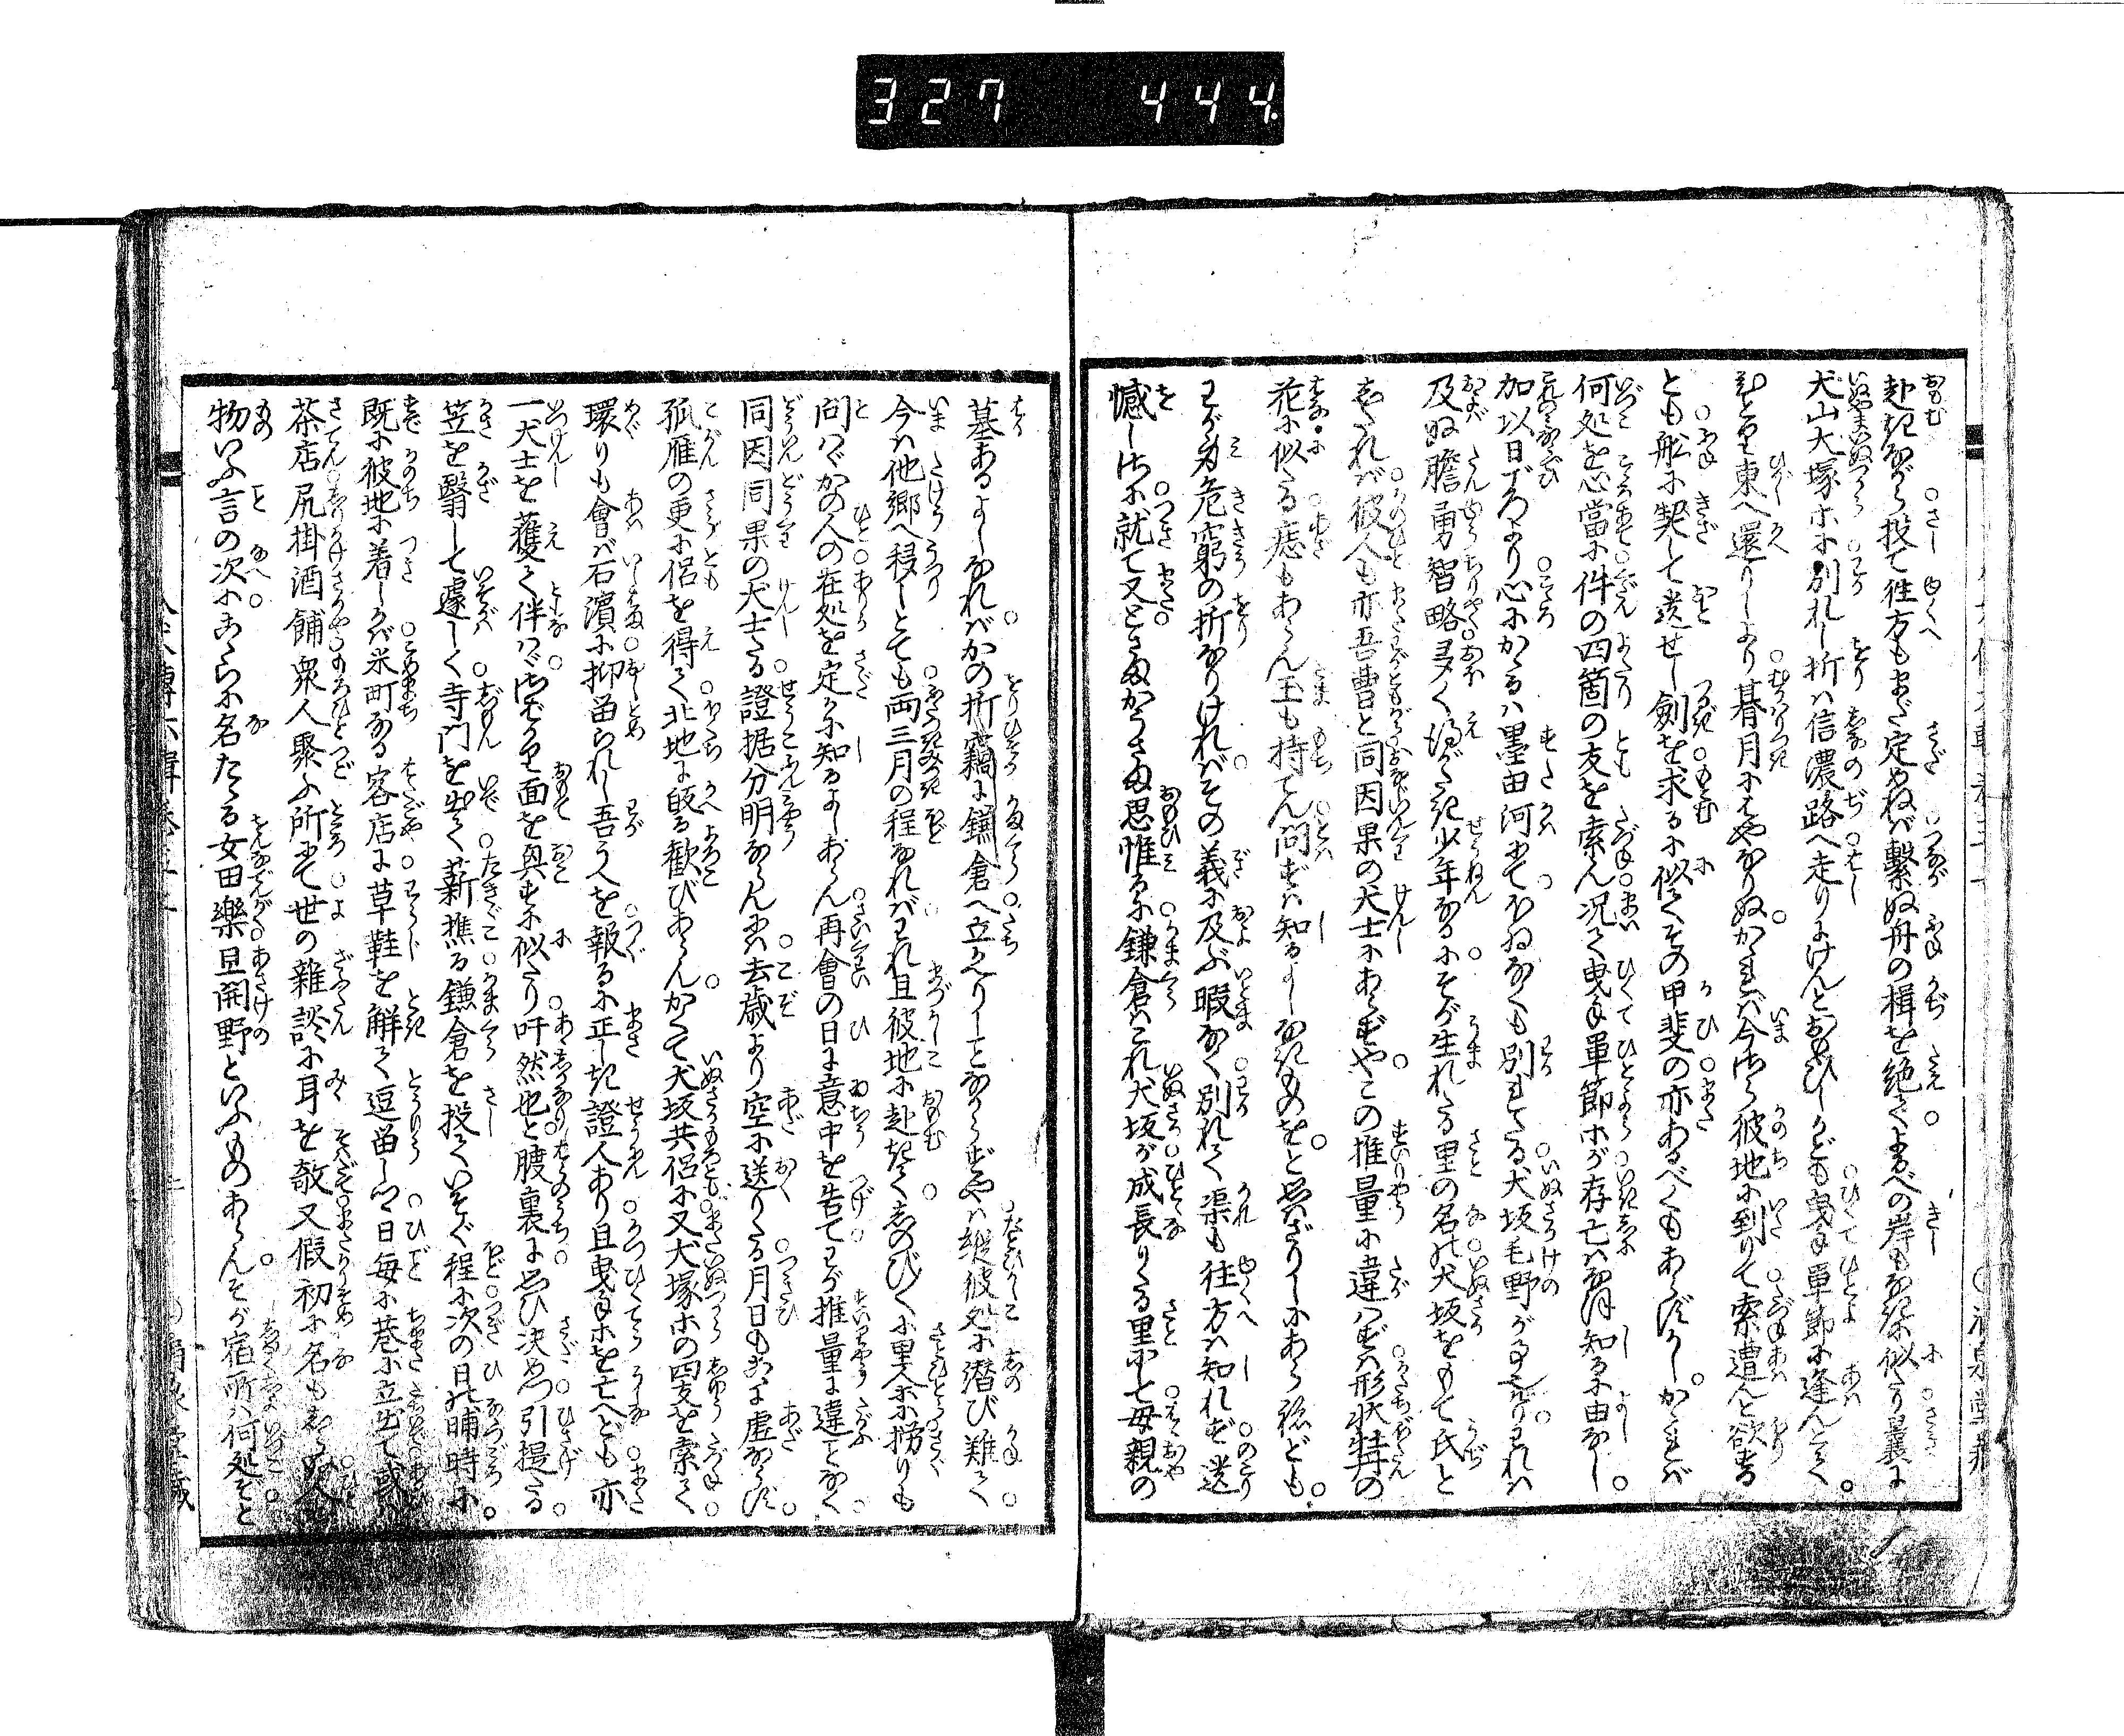 327 444
赴きながら投て往方もまだ定めねば繋ぬ舟の楫を絶てよるべの岸もなきに似たり曩に
犬山犬塚ホに別れし折は信濃路へ走りにけんとおもひしかども曳手單節に逢んとて
ひとり東へ還りしより暮月にはやなりぬかゝれば今さら彼地に到りて索遭んと欲する
とも舩に契して送せし劍を求るに似てその甲斐の亦あるべくもあらずかしかゝれば
何処を心當に件の四箇の友を索ん况て曳手單節ホが存亡はなほ知るに由なし
加以日ごろより心にかゝるは墨田河にてほゐなくも別れたる犬坂毛野が事なりわれは
及ぬ膽勇智略多く得がたき少年なるにそが生れたる里の名の犬坂をもて氏と
すなれば彼人も亦吾曹と同因果の犬士にあらずやこの推量に違はずは形状牡丹の
花に似たる痣もあらん玉も持てん問ずは知るよしなきものをと思はざりしにあらねども
わが身危窮の折なりければその義に及ぶ暇なく別れて渠も往方は知れず送
憾しけに就て又とさまかうさま思惟るに鎌倉はこれ犬坂が成長りたる里にて母親の
墓あるよしなればかの折竊に鎌倉へ立かへりしとならずや縦彼処に潜び難くて
今は他郷へ移しとても両三月の程なればわれ且彼地に赴きてしのび〳〵に里人に撈りも
問はゞかの人の在処を定かに知るよしあらん再會の日に意中を告てわが推量に違ことなく
同因同果の犬士たる證据分明ならんには去歳より空に送りたる月日もあに虚ならず
孤雁の更に侶を得て北地に皈る歓びあらんかくて犬坂共侶に又犬塚ホの四友を索て
環りも會ば石濱に抑留られし吾うへを報るに正しき證人あり且曳手ホを亡へども亦
一犬士を獲て伴はゞけだし面を與すに似たり吁然也と腹裏に思ひ决めつ引提たる
笠を翳して遽しく寺門を出て薪樵る鎌倉を投ていそぐ程に次の日の晡時に
既に彼地に着しかば米町なる客店に草鞋を觧て逗畄しつ日毎に巷に立出て或は
茶店尻掛酒舗衆人聚ふ所にて世の雑談に耳を敧又假初に名もしらぬ人に
物いふ言の次にこゝらに名たゝる女田樂旦開野といふものあらんそが宿所は何処ぞと